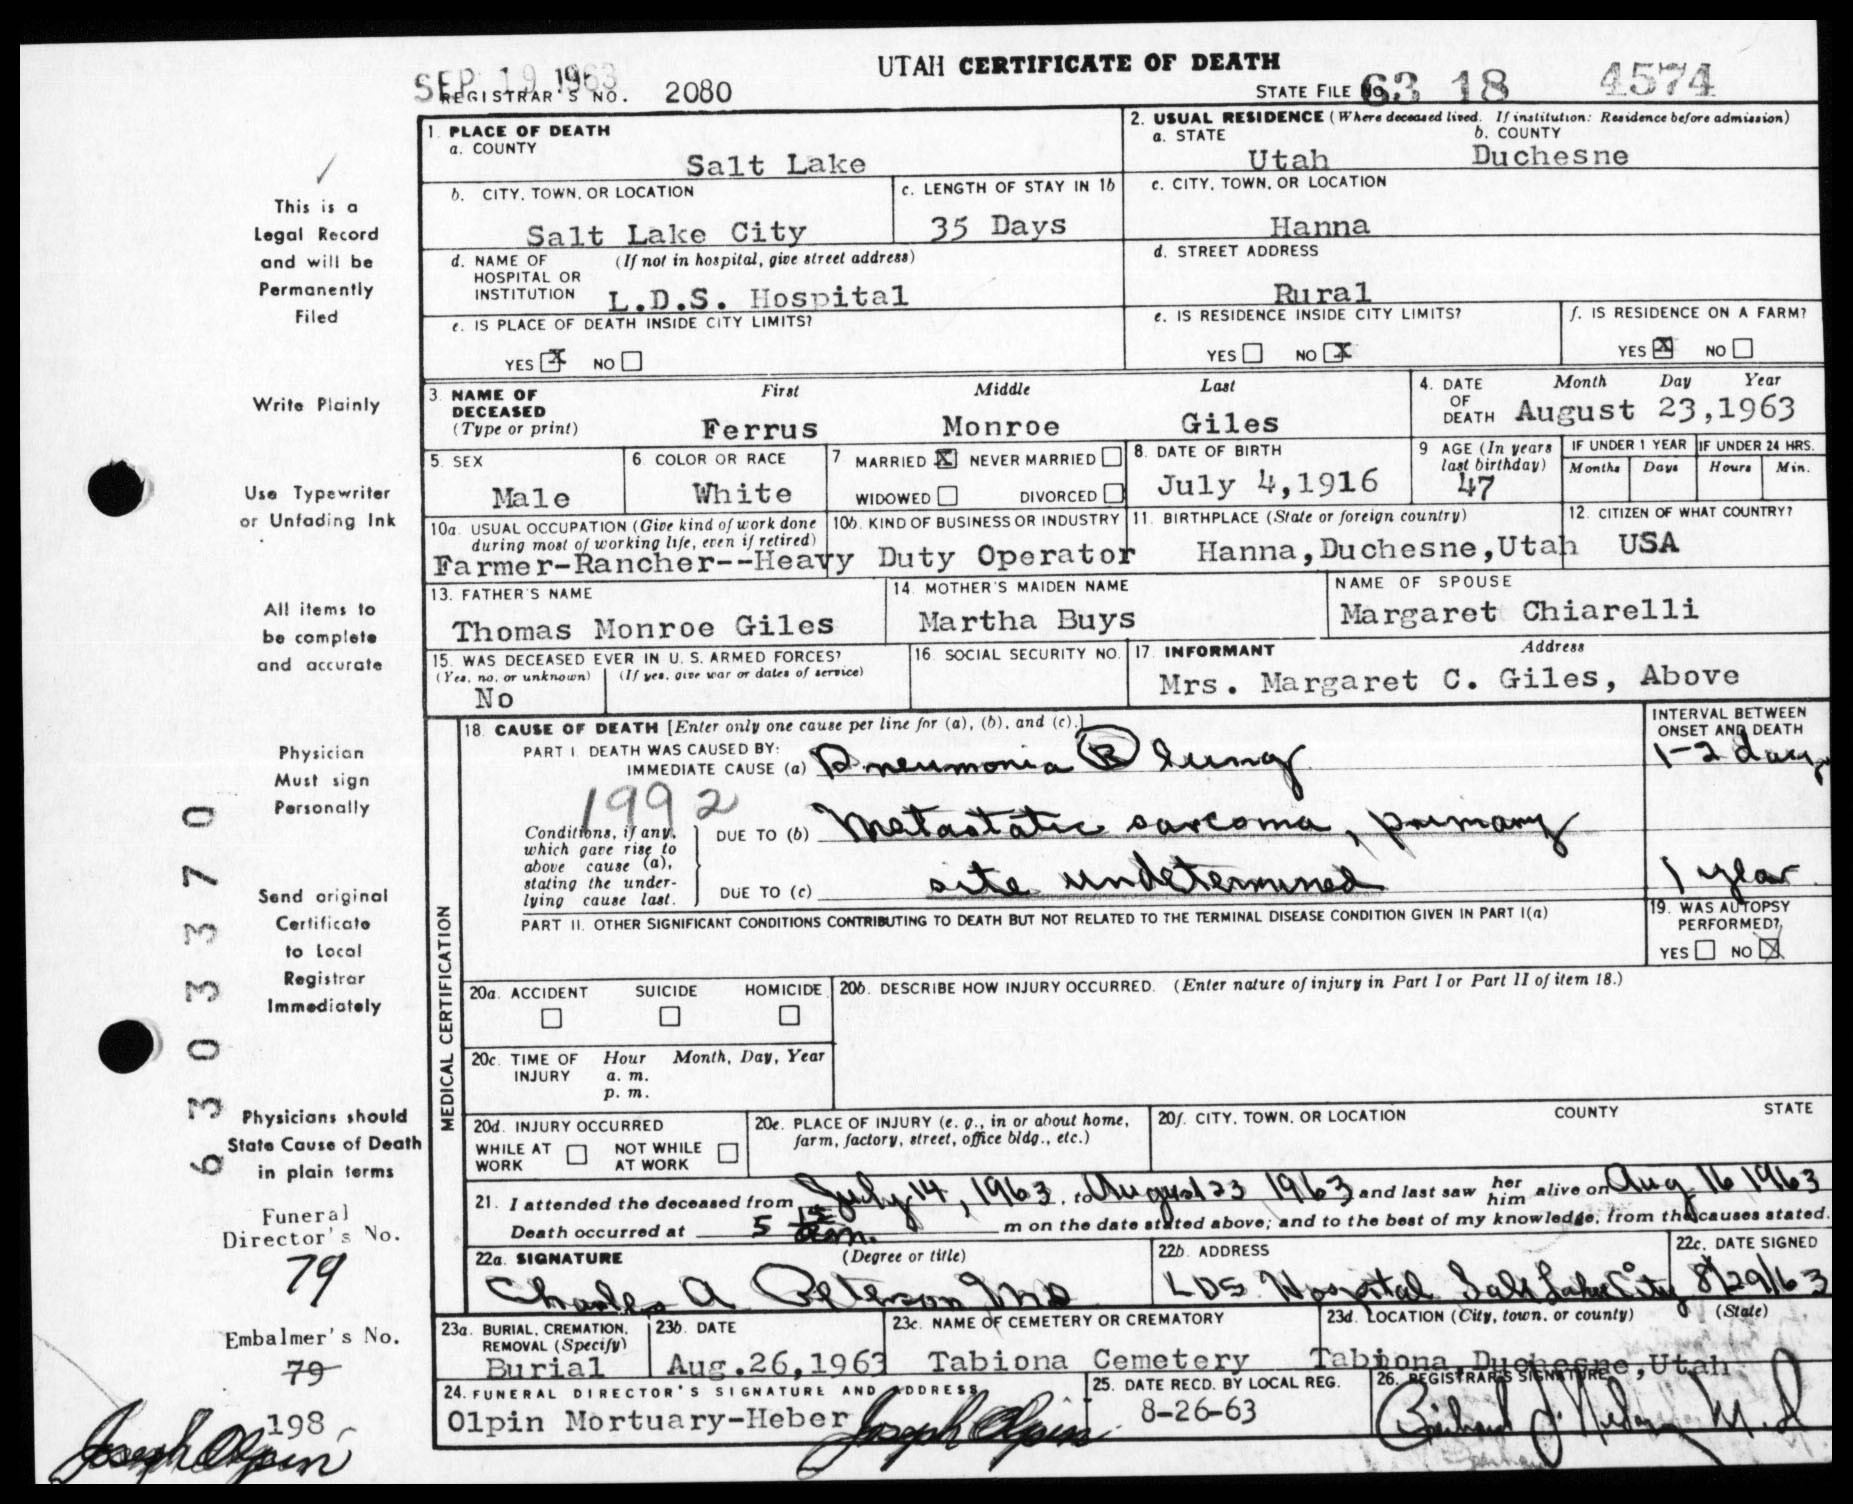 UTAH CERTIFICATE OF DEATH
SEP 19 1963
REGISTRAR'S NO. 2080
STATE FILE No. 63 18 4574
1. PLACE OF DEATH
a. COUNTY
Salt Lake
2. USUAL RESIDENCE (Where deceased lived. If institution: Residence before admission)
a. STATE b. COUNTY
Utah Duchesne
b. CITY, TOWN, OR LOCATION
Salt Lake City
c. LENGTH OF STAY IN 1b
35 Days
c. CITY, TOWN, OR LOCATION
Hanna
d. NAME OF HOSPITAL OR INSTITUTION (If not in hospital, give street address)
L.D.S. Hospital
d. STREET ADDRESS
Rural
e. IS PLACE OF DEATH INSIDE CITY LIMITS?
YES X NO
e. IS RESIDENCE INSIDE CITY LIMITS?
YES NO X
f. IS RESIDENCE ON A FARM?
YES X NO
3. NAME OF DECEASED (Type or print)
First Middle Last
Ferrus Monroe Giles
4. DATE OF DEATH Month Day Year
August 23,1963
5. SEX
Male
6. COLOR OR RACE
White
7 MARRIED X NEVER MARRIED
WIDOWED DIVORCED
8. DATE OF BIRTH
July 4,1916
9 AGE (In years last birthday)
47
IF UNDER 1 YEAR IF UNDER 24 HRS.
Months Days Hours Min.
10a. USUAL OCCUPATION (Give kind of work done during most of working life, even if retired)
10b. KIND OF BUSINESS OR INDUSTRY
Farmer-Rancher--Heavy Duty Operator
11. BIRTHPLACE (State or foreign country)
Hanna,Duchesne,Utah
12. CITIZEN OF WHAT COUNTRY?
USA
13. FATHER'S NAME
Thomas Monroe Giles
14. MOTHER'S MAIDEN NAME
Martha Buys
NAME OF SPOUSE
Margaret Chiarelli
15. WAS DECEASED EVER IN U. S. ARMED FORCES?
(Yes, no, or unknown) (If yes, give war or dates of service)
No
16. SOCIAL SECURITY NO.
17. INFORMANT Address
Mrs. Margaret C. Giles, Above
MEDICAL CERTIFICATION
18. CAUSE OF DEATH [Enter only one cause per line for (a), (b), and (c).]
INTERVAL BETWEEN ONSET AND DEATH
PART I. DEATH WAS CAUSED BY:
IMMEDIATE CAUSE (a) Pneumonia R lung
1-2 days
1992
Conditions, if any, which gave rise to above cause (a), stating the underlying cause last.
DUE TO (b) Metastatic sarcoma, primary
DUE TO (c) site undetermined
1 year
PART II. OTHER SIGNIFICANT CONDITIONS CONTRIBUTING TO DEATH BUT NOT RELATED TO THE TERMINAL DISEASE CONDITION GIVEN IN PART I(a)
19. WAS AUTOPSY PERFORMED?
YES NO X
20a. ACCIDENT SUICIDE HOMICIDE
20b. DESCRIBE HOW INJURY OCCURRED. (Enter nature of injury in Part I or Part II of item 18.)
20c. TIME OF INJURY Hour Month, Day, Year
a. m.
p. m.
20d. INJURY OCCURRED
WHILE AT WORK NOT WHILE AT WORK
20e. PLACE OF INJURY (e. g., in or about home, farm, factory, street, office bldg., etc.)
20f. CITY, TOWN, OR LOCATION COUNTY STATE
21. I attended the deceased from July 14, 1963, to August 23 1963 and last saw her him alive on Aug 16 1963
Death occurred at 5 15 am. m on the date stated above; and to the best of my knowledge, from the causes stated.
22a. SIGNATURE (Degree or title)
Charles A Peterson MD
22b. ADDRESS
LDS Hospital Salt Lake City
22c. DATE SIGNED
8/29/63
23a. BURIAL, CREMATION, REMOVAL (Specify)
Burial
23b. DATE
Aug.26,1963
23c. NAME OF CEMETERY OR CREMATORY
Tabiona Cemetery
23d. LOCATION (City, town, or county) (State)
Tabiona,Duchesne,Utah
24. FUNERAL DIRECTOR'S SIGNATURE AND ADDRESS
Olpin Mortuary-Heber Joseph Olpin
25. DATE RECD. BY LOCAL REG.
8-26-63
26. REGISTRAR'S SIGNATURE
This is a
Legal Record
and will be
Permanently
Filed
Write Plainly
Use Typewriter
or Unfading Ink
All items to
be complete
and accurate
Physician
Must sign
Personally
Send original
Certificate
to Local
Registrar
Immediately
Physicians should
State Cause of Death
in plain terms
Funeral
Director's No.
79
Embalmer's No.
79
198
Joseph Olpin
63033370